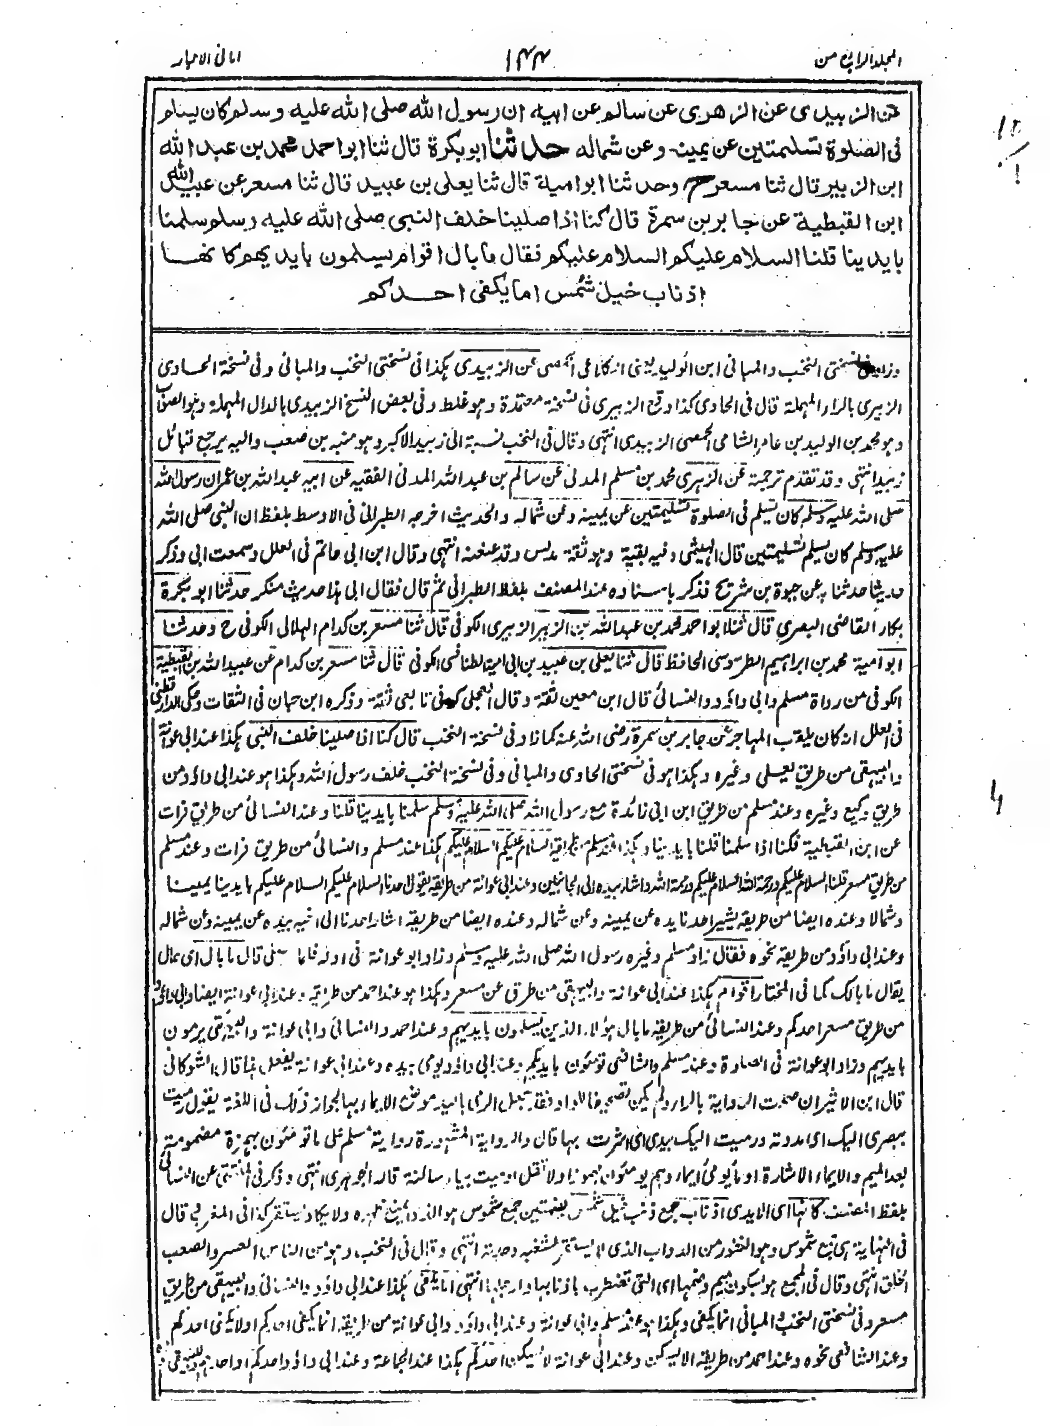 المجلد الرابع من
١٤٤
امانى الاحبار
عن الزبيدى عن الزهرى عن سالم عن ابيه ان رسول الله صلى الله عليه وسلم كان يسلم
فى الصلوة تسليمتين عن يمينه وعن شماله حدثنا ابوبكرة قال ثنا ابو احمد محمد بن عبد الله
ابن الزبير قال ثنا مسعر ح وحدثنا ابو امية قال ثنا يعلى بن عبيد قال ثنا مسعر عن عبيد الله
ابن القبطية عن جابر بن سمرة قال كنا اذا صلينا خلف النبى صلى الله عليه وسلم سلمنا
بايدينا قلنا السلام عليكم السلام عليكم فقال ما بال اقوام يسلمون بايديهم كانها
اذناب خيل شمس اما يكفى احدكم
نسختى النخب والمبانى ابن الوليد يعنى عن الزبيدى هكذا فى نسختى النخب والمبانى وفى نسخة الحاوى
الزبيرى بالراء المهملة قال فى الحاوى كذا وقع الزبيرى فى نسخة معتمدة وهو غلط وفى بعض النسخ الزبيدى بالدال المهملة وهو الصواب
وهو محمد بن الوليد بن عامر الشامى الحمصى الزبيدى انتهى وقال فى النخب نسبة الى زبيد الاكبر وهو منبه بن صعب واليه يرجع قبائل
زبيد انتهى وقد تقدم ترجمة عن الزهرى محمد بن مسلم المدنى عن سالم بن عبد الله المدنى الفقيه عن ابيه عبد الله بن عمر ان رسول الله
صلى الله عليه وسلم كان يسلم فى الصلوة تسليمتين عن يمينه وعن شماله والحديث اخرجه الطبرانى فى الاوسط بلفظ ان النبى صلى الله
عليه وسلم كان يسلم تسليمتين قال الهيثمى وفيه بقية وهو ثقة مدلس وقد عنعنه انتهى وقال ابن ابى حاتم فى العلل وسمعت ابى وذكر
حديثا حدثنا به عن حيوة بن شريح فذكر باسناده عند المصنف بلفظ الطبرانى ثم قال فقال ابى هذا حديث منكر حدثنا ابو بكرة
بكار القاضى البصرى قال ثنا ابو احمد محمد بن عبد الله بن الزبير الزبيرى الكوفى قال ثنا مسعر بن كدام الهلالى الكوفى ح وحدثنا
ابو امية محمد بن ابراهيم الطرسوسى الحافظ قال ثنا يعلى بن عبيد بن ابى امية الطنافسى الكوفى قال ثنا مسعر بن كدام عن عبيد الله بن القبطية
الكوفى من رواة مسلم وابى داؤد والنسائى قال ابن معين ثقة وقال العجلى كوفى تابعى ثقة وذكره ابن حبان فى الثقات وحكى الدارقطنى
فى العلل انه كان يلقب المهاجر عن جابر بن سمرة رضى الله عنه كما فى نسخة النخب قال كنا اذا صلينا خلف النبى هكذا عند ابى عوانة
والبيهقى من طريق يعلى وغيره وهكذا هو فى نسختى الحاوى والمبانى وفى نسخة النخب خلف رسول الله وهكذا هو عند ابى داؤد من
طريق وكيع وغيره وعند مسلم من طريق ابن ابى زائدة مع رسول الله صلى الله عليه وسلم سلمنا بايدينا قلنا وعند النسائى من طريق فرات
عن ابن القبطية فكنا اذا سلمنا قلنا بايدينا السلام عليكم السلام عليكم هكذا عند مسلم والنسائى من طريق فرات وعند مسلم
من طريق مسعر قلنا السلام عليكم ورحمة الله السلام عليكم ورحمة الله واشار بيده الى الجانبين وعند ابى عوانة من طريقه يقول احدنا السلام عليكم السلام عليكم بايدينا يمينا
وشمالا وعنده ايضا من طريقه يشير احدنا بيده عن يمينه وعن شماله وعنده ايضا من طريقه اشار احدنا الى اخيه بيده عن يمينه وعن شماله
وعند ابى داؤد من طريقه نحوه فقال زاد مسلم وغيره رسول الله صلى الله عليه وسلم وزاد ابو عوانة فى اوله فلما صلى قال ما بال اى حال
يقال ما بالك كما فى المختار اقوام هكذا عند ابى عوانة والبيهقى من طرق عن مسعر وهكذا هو عند احمد من طريقه وعند ابى عوانة ايضا وابى داؤد
من طريق مسعر احدكم وعند النسائى من طريقه ما بال هؤلاء الذين يسلمون بايديهم وعند احمد والنسائى وابى عوانة والبيهقى يرمون
بايديهم وزاد ابو عوانة فى الصلوة وعند مسلم والشافعى تؤمئون بايديكم وعند ابى داؤد يومى بيده وعند ابى عوانة يفعل هذا قال الشوكانى
قال ابن الاثير ان صحت الرواية بالراء ولم يكن تصحيفا للواو فقد جعل الرمى باليد موضع الايماء بها لجواز ذلك فى اللغة يقول رميت
ببصرى اليك اى مددته ورميت اليك بيدى اى اشرت بها قال والرواية المشهورة رواية مسلم على ما تومئون بهمزة مضمومة
بعد الميم والايماء الاشارة اومأ يومئ ايماء وهم يومئون مهموزا ولا تقل اوميت بياء ساكنة قاله الجوهرى انتهى وذكر فى المنتقى عن النسائى
بلفظ المصنف كانها اى الايدى اذناب جمع ذنب خيل شمس بضمتين جمع شموس هو الذى يمنع ظهره ولا يكاد يستقر كذا فى المغرب قال
فى النهاية هى جمع شموس وهو النفور من الدواب الذى لا يستقر لشغبه وحدته انتهى وقال فى النخب وهو من الناس العسر والصعب
الخلق انتهى وقال فى المجمع هو بسكون ميم وضمها اى التى تضطرب باذنابها وارجلها انتهى اما يكفى هكذا عند ابى داؤد والنسائى والبيهقى من طريق
مسعر وفى نسختى النخب والمبانى انما يكفى وهكذا هو عند مسلم وابى عوانة وعند ابى داؤد وابى عوانة من طريقه انما يكفى احدكم اولا يكفى احدكم
وعند الشافعى نحوه وعند احمد من طريقه الا يسكن وعند ابى عوانة لا يسكن احدكم هكذا عند الجماعة وعند ابى داؤد احدكم او احدهم